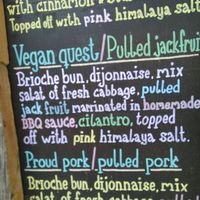 with cinnamon
Topped off with pink himalaya salt
Vegan quest/Pulled jackfrui
Brioche bun, dijonnaise, mix
salat of fresh cabbage, pulled
jack fruit marinated in homemade
BBQ sauce, cilantro, topped
off with pink himalaya salt.
Proud pork/pulled pork
Brioche bun, dijonnaise, mix
salat of fresh cabbage